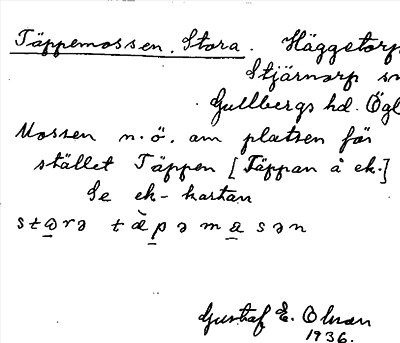 Täppemossen, Stora. Häggetorp
Stjärnorp sn
Gullbergs hd. Ögl
Mossen n.ö. om platsen för
stället Täppen [Täppan å ek.]
Se ek-kartan
stɷrə tæ̀pəmasən
Gustaf E. Olman
1936.